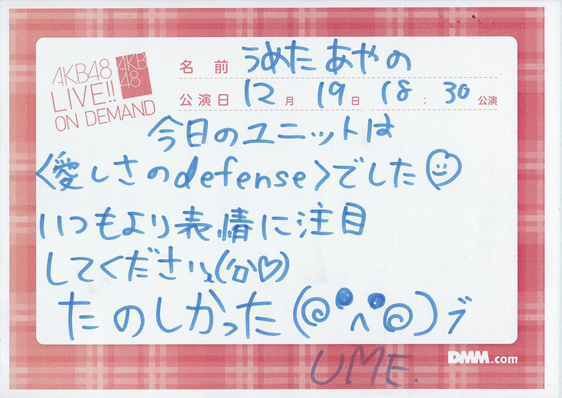 AKB48
LIVE!!
ON DEMAND
AKB
48
名前 うめた あやの
公演日 12月 19日 18:30 公演
今日のユニットは
〈愛しさのdefense〉でした
いつもより表情に注目
してください(か♡)
たのしかった(@^@)ブ
UME.
DMM.com